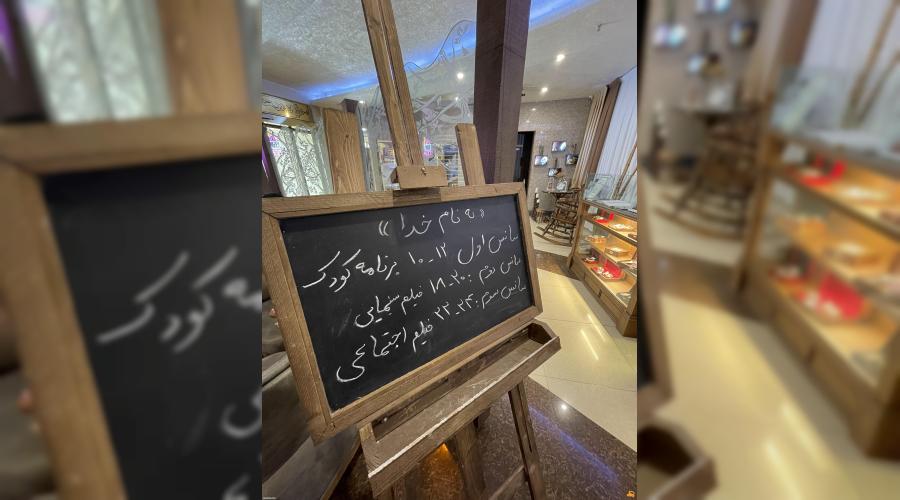 « به نام خدا »
سانس اول ۱۲-۱۰ برنامه کودک
سانس دوم : ۲۰-۱۸ فیلم سینمایی
سانس سوم : ۲۴-۲۲ فیلم اجتماعی